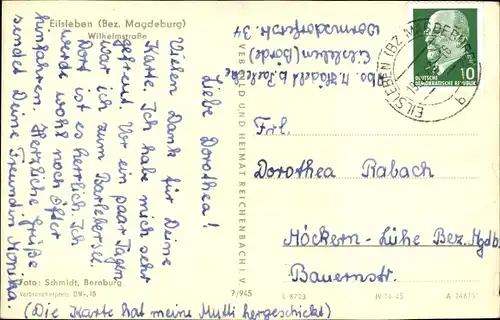 Eilsleben (Bez. Magdeburg)
Wilhelmstraße
Liebe Dorothea!
Vielen Dank für Deine
Karte. Ich habe mich sehr
gefreut. Vor ein paar Tagen
war ich zum Barleber See.
Dort ist es herrlich. Ich
werde wohl noch öfter
hinfahren. Herzliche Grüße
sendet Deine Freundin Monika
(Die Karte hat meine Mutti hergeschickt)
Foto: Schmidt, Bernburg
Verbraucherpreis DM -,15
VEB BILD UND HEIMAT REICHENBACH I. V.
7/945
Abs. M.
Eilsleben (Börde)
Wormsdorferstr. 34
EILSLEBEN (BZ. MAGDEBURG)
DEUTSCHE
DEMOKRATISCHE REPUBLIK
10
Frl.
Dorothea Rabach
Möckern-Lühe Bez. Mgdb.
Bauernstr.
IV-14-45